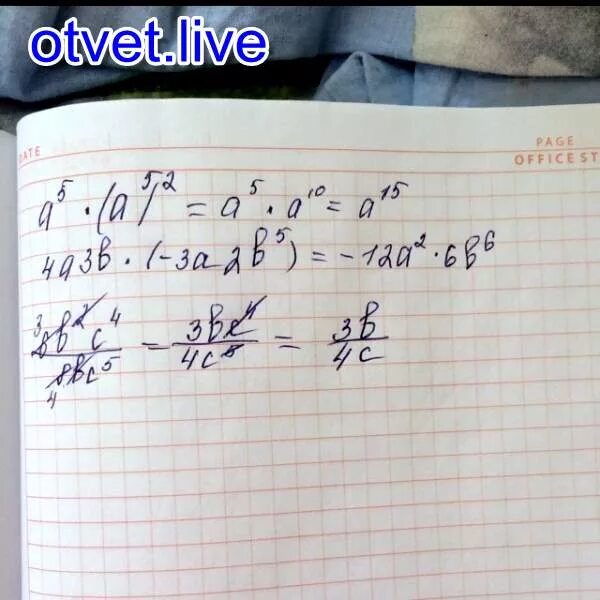 otvet.live
DATE
PAGE
OFFICE ST
a⁵ · (a⁵)² = a⁵ · a¹⁰ = a¹⁵
4a3b · (-3a2b⁵) = -12a² · 6b⁶
3 6b²c⁴ / 4 8bc⁵ = 3bc⁴ / 4c⁵ = 3b / 4c